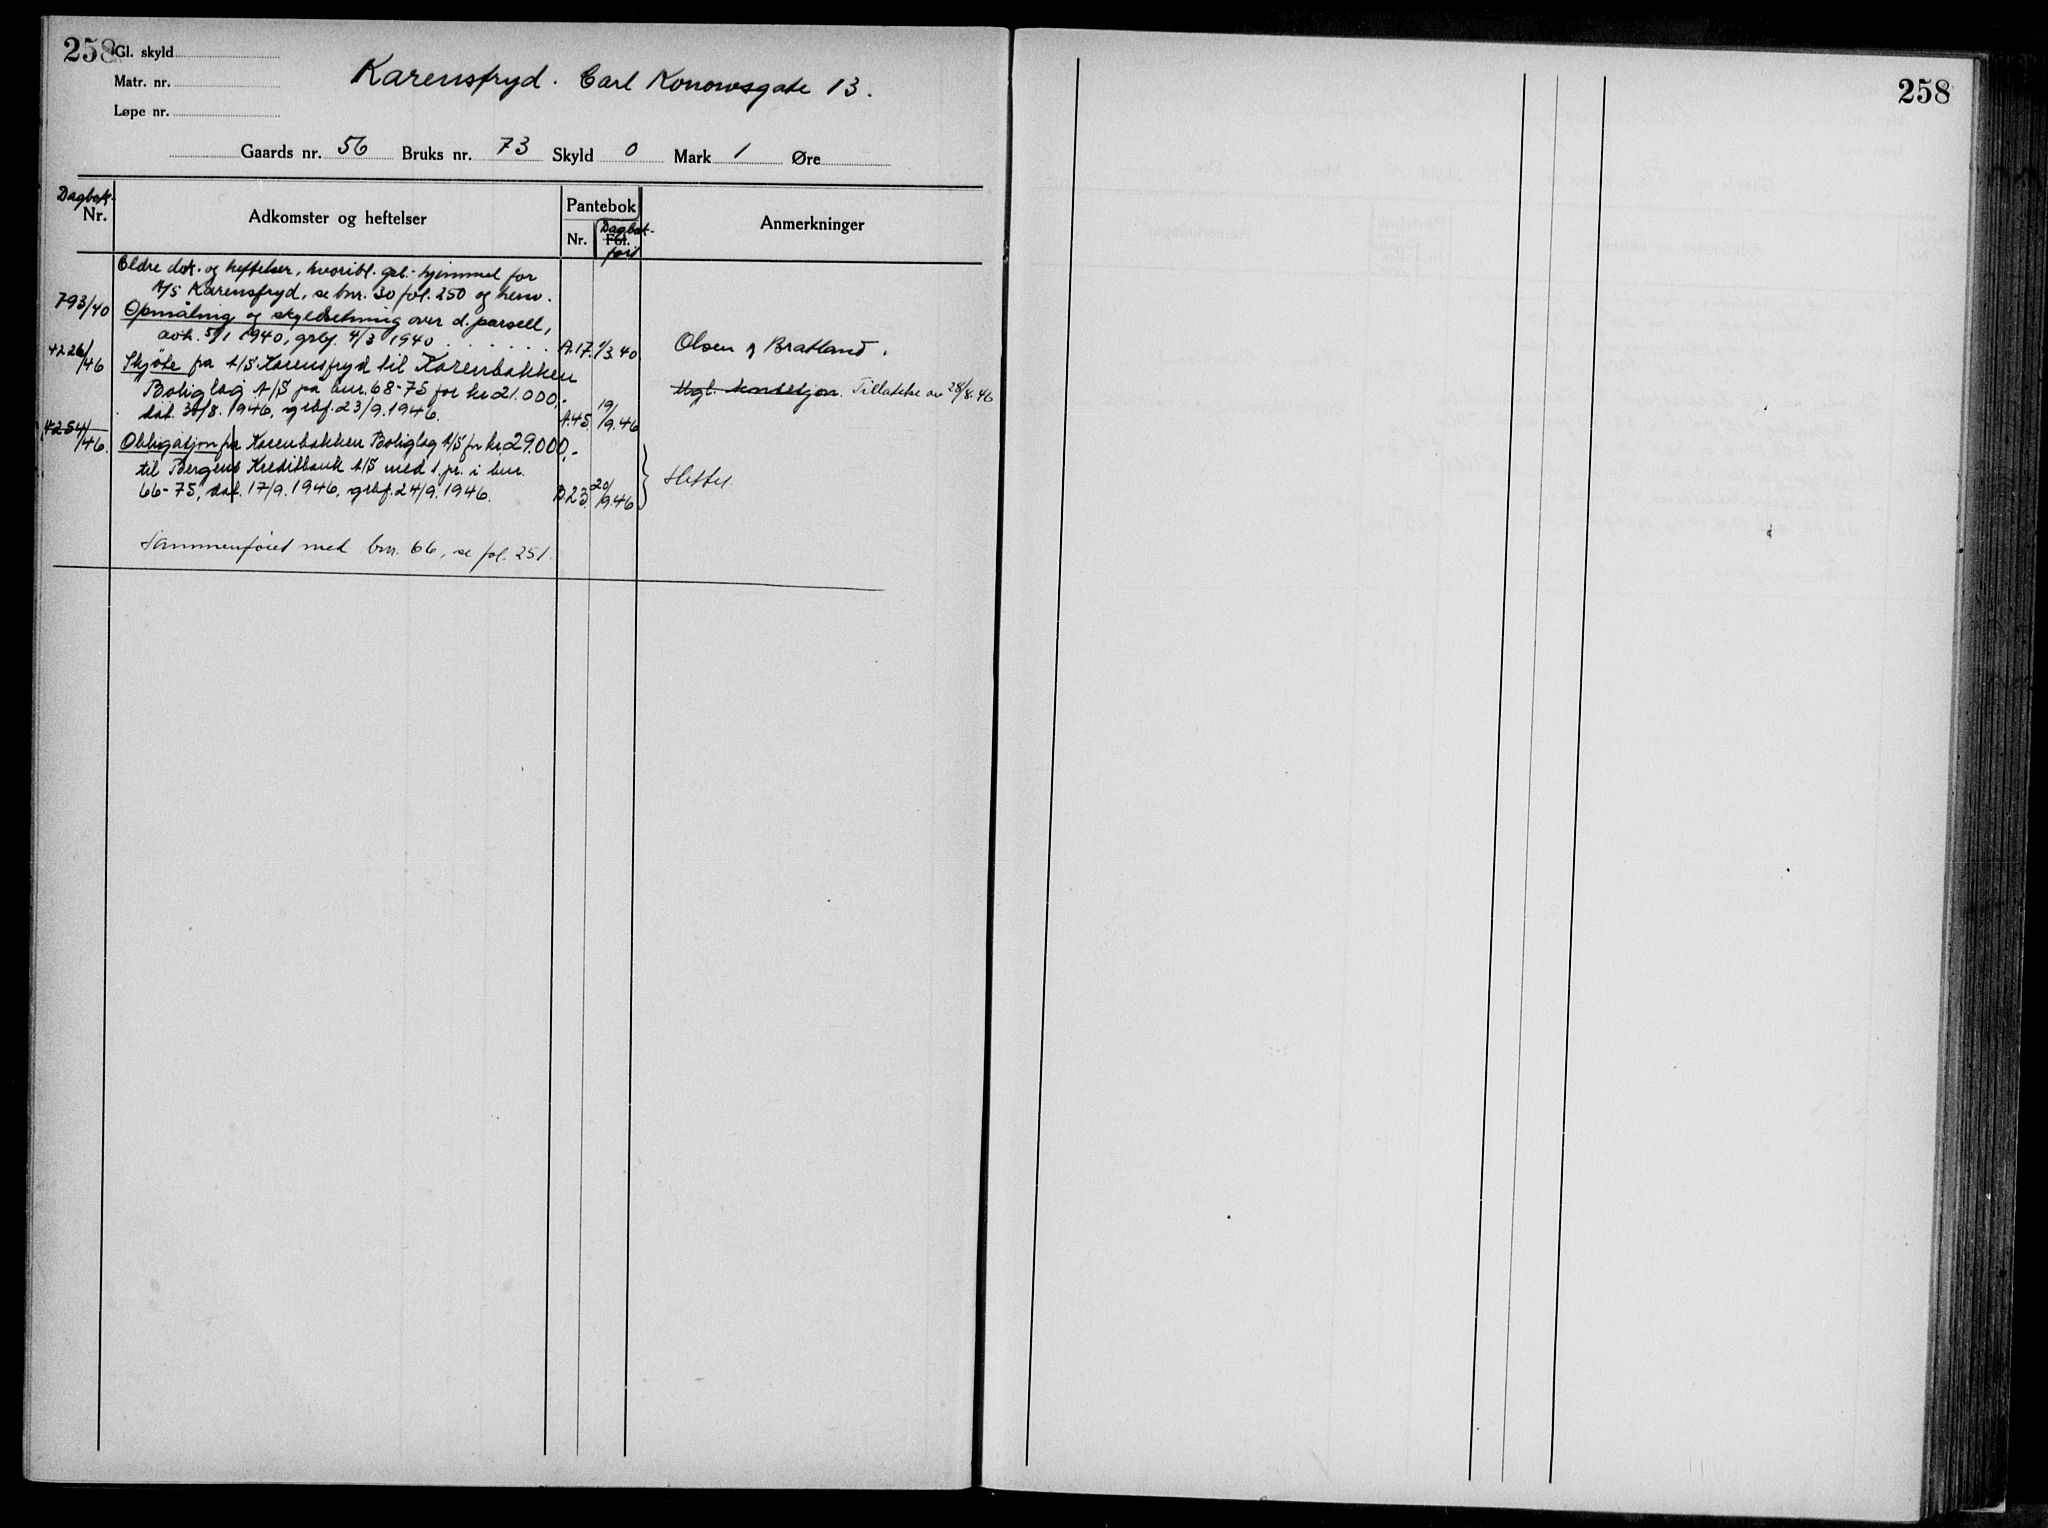 258
Gl. skyld
Matr. nr.
Løpe nr.
Karensfryd. Carl Konowsgate 13.
Gaards nr. 56 Bruks nr. 73 Skyld 0 Mark 1 Øre
Dagbok-
Nr.
Adkomster og heftelser
Pantebok
Nr.
Fol.
Dagbok-
ført
Anmerkninger
Eldre dok. og heftelser, hvoribl. grb.-hjemmel for
A/S Karensfryd, se bnr. 30 fol. 250 og henv.
793/40 Opmåling og skyldsetning over d. parsell,
avh. 5/1 1940, grbf. 4/3 1940 . . . . . . . A.17. 1/3.40 Olsen og Bratland.
4226/46 Skjøte fra A/S Karensfryd til Karenbakken
Boliglag A/S på bnr. 68-75 for kr 21.000,-
dat. 30/8. 1946, grbf. 23/9. 1946. A.45. 19/9.46 Mgl. konsesjon. Tillatelse av 28/8.46
4254/46 Obligasjon fra Karenbakken Boliglag A/S for kr. 29.000,-
til Bergens Kreditbank A/S med 1. pr. i bnr.
66-75, dat. 17/9. 1946, grbf. 24/9. 1946. B23. 20/9.46 Heftel.
Sammenføiet med bnr. 66, se fol. 251.
258